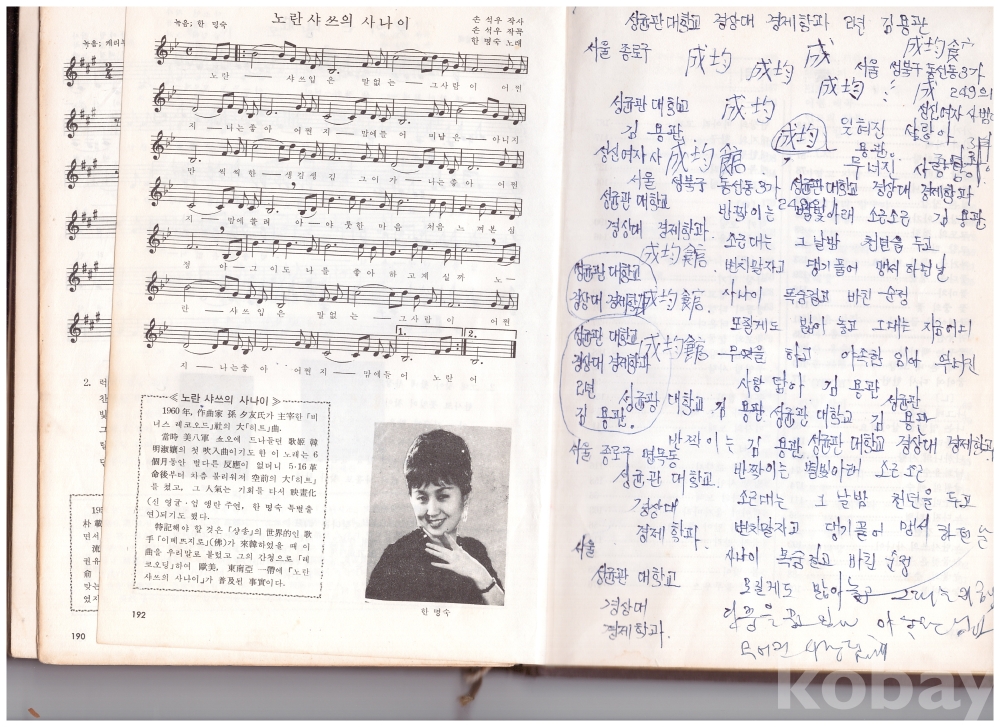 노란 샤쓰의 사나이
녹음; 한 명숙
손 석우 작사
손 석우 작곡
한 명숙 노래
노 란 ― 샤쓰입 은 말없 는 ― 그사람 이 어쩐
지 ― 나는좋아 어쩐 지 ― 맘에들어 미남 은 ― 아니지
만 씩씩 한 ― 생김생김 그이 가 ― 나는좋아 어쩐
지 ― 맘에쏠려 아 ― 야릇한 마음 처음 느껴본 심
정 아 ― 그이도 나를 좋아 하고계 실까 노 ―
란 ― 샤쓰입 은 말없 는 ― 그사람 이 어쩐
1. 2.
지 ― 나는좋아 어쩐지 ― 맘에들어 노란 어
≪ 노란 샤쓰의 사나이 ≫
1960年, 作曲家 孫 夕友氏가 主宰한 「비
니스 레코오드」社의 大「히트」曲.
當時 美八軍 쇼오에 드나들던 歌姬 韓
明淑孃의 첫 吹入曲이기도 한 이 노래는 6
個月동안 별다른 反應이 없더니 5·16革
命後부터 차츰 불리워져 空前의 大「히트」
를 졌고, 그 人氣는 기회를 다시 映畫化
(신 영균·엄 앵란 주연, 한 명숙 특별출
연)되기도 했다.
特記해야 할 것은 「샹송」의 世界的인 歌
手「이베트지로」(佛)가 來韓하였을 때 이
曲을 우리말로 불렀고 그의 간청으로 「레
코오딩」하여 歐美, 東南亞 一帶에 「노란
샤쓰의 사나이」가 普及된 事實이다.
한 명숙
192
190
2.
성균관 대학교 경상대 경제학과 2년 김용관
서울 종로구 成均 成均 成 成均館
서울 성북구 동선동 3가
成均 成 249의
성균관 대학교 成均
김용관 成均 잊혀진 사랑아
용관
성신여자사 成均館 무너진 사랑탑아
서울 성북구 동선동 3가 성균관대학교 경상대 경제학과
249의
성균관 대학교 반짝이는 별빛아래 소근소근 김용관
경상대 경제학과 소근대는 그날밤 천년을 두고
成均館 변치말자고 댕기풀어 맹세 하던날
성균관 대학교
경상대 경제학과 成均館 사나이 목숨걸고 바친 순정
모질게도 밟아 놓고 그대는 지금어디
성균관 대학교
경상대 경제학과 成均館 무엇을 하고 야속한 임아 무너진
2년 사랑 탑아 김용관
김용관. 성균관 대학교 김용관 성균관 대학교 김용관
성균관
서울 종로구 명륜동 반짝이는 김용관 성균관 대학교 경상대 경제학과
성균관 대학교 반짝이는 별빛아래 소근소근
경상대 소근대는 그날밤 천년을 두고
경제학과. 변치말자고 댕기풀어 맹세 하던
서울 사나이 목숨걸고 바친 순정
성균관 대학교 모질게도 밟아놓고 그대는
경상대
경제학과.
kobay